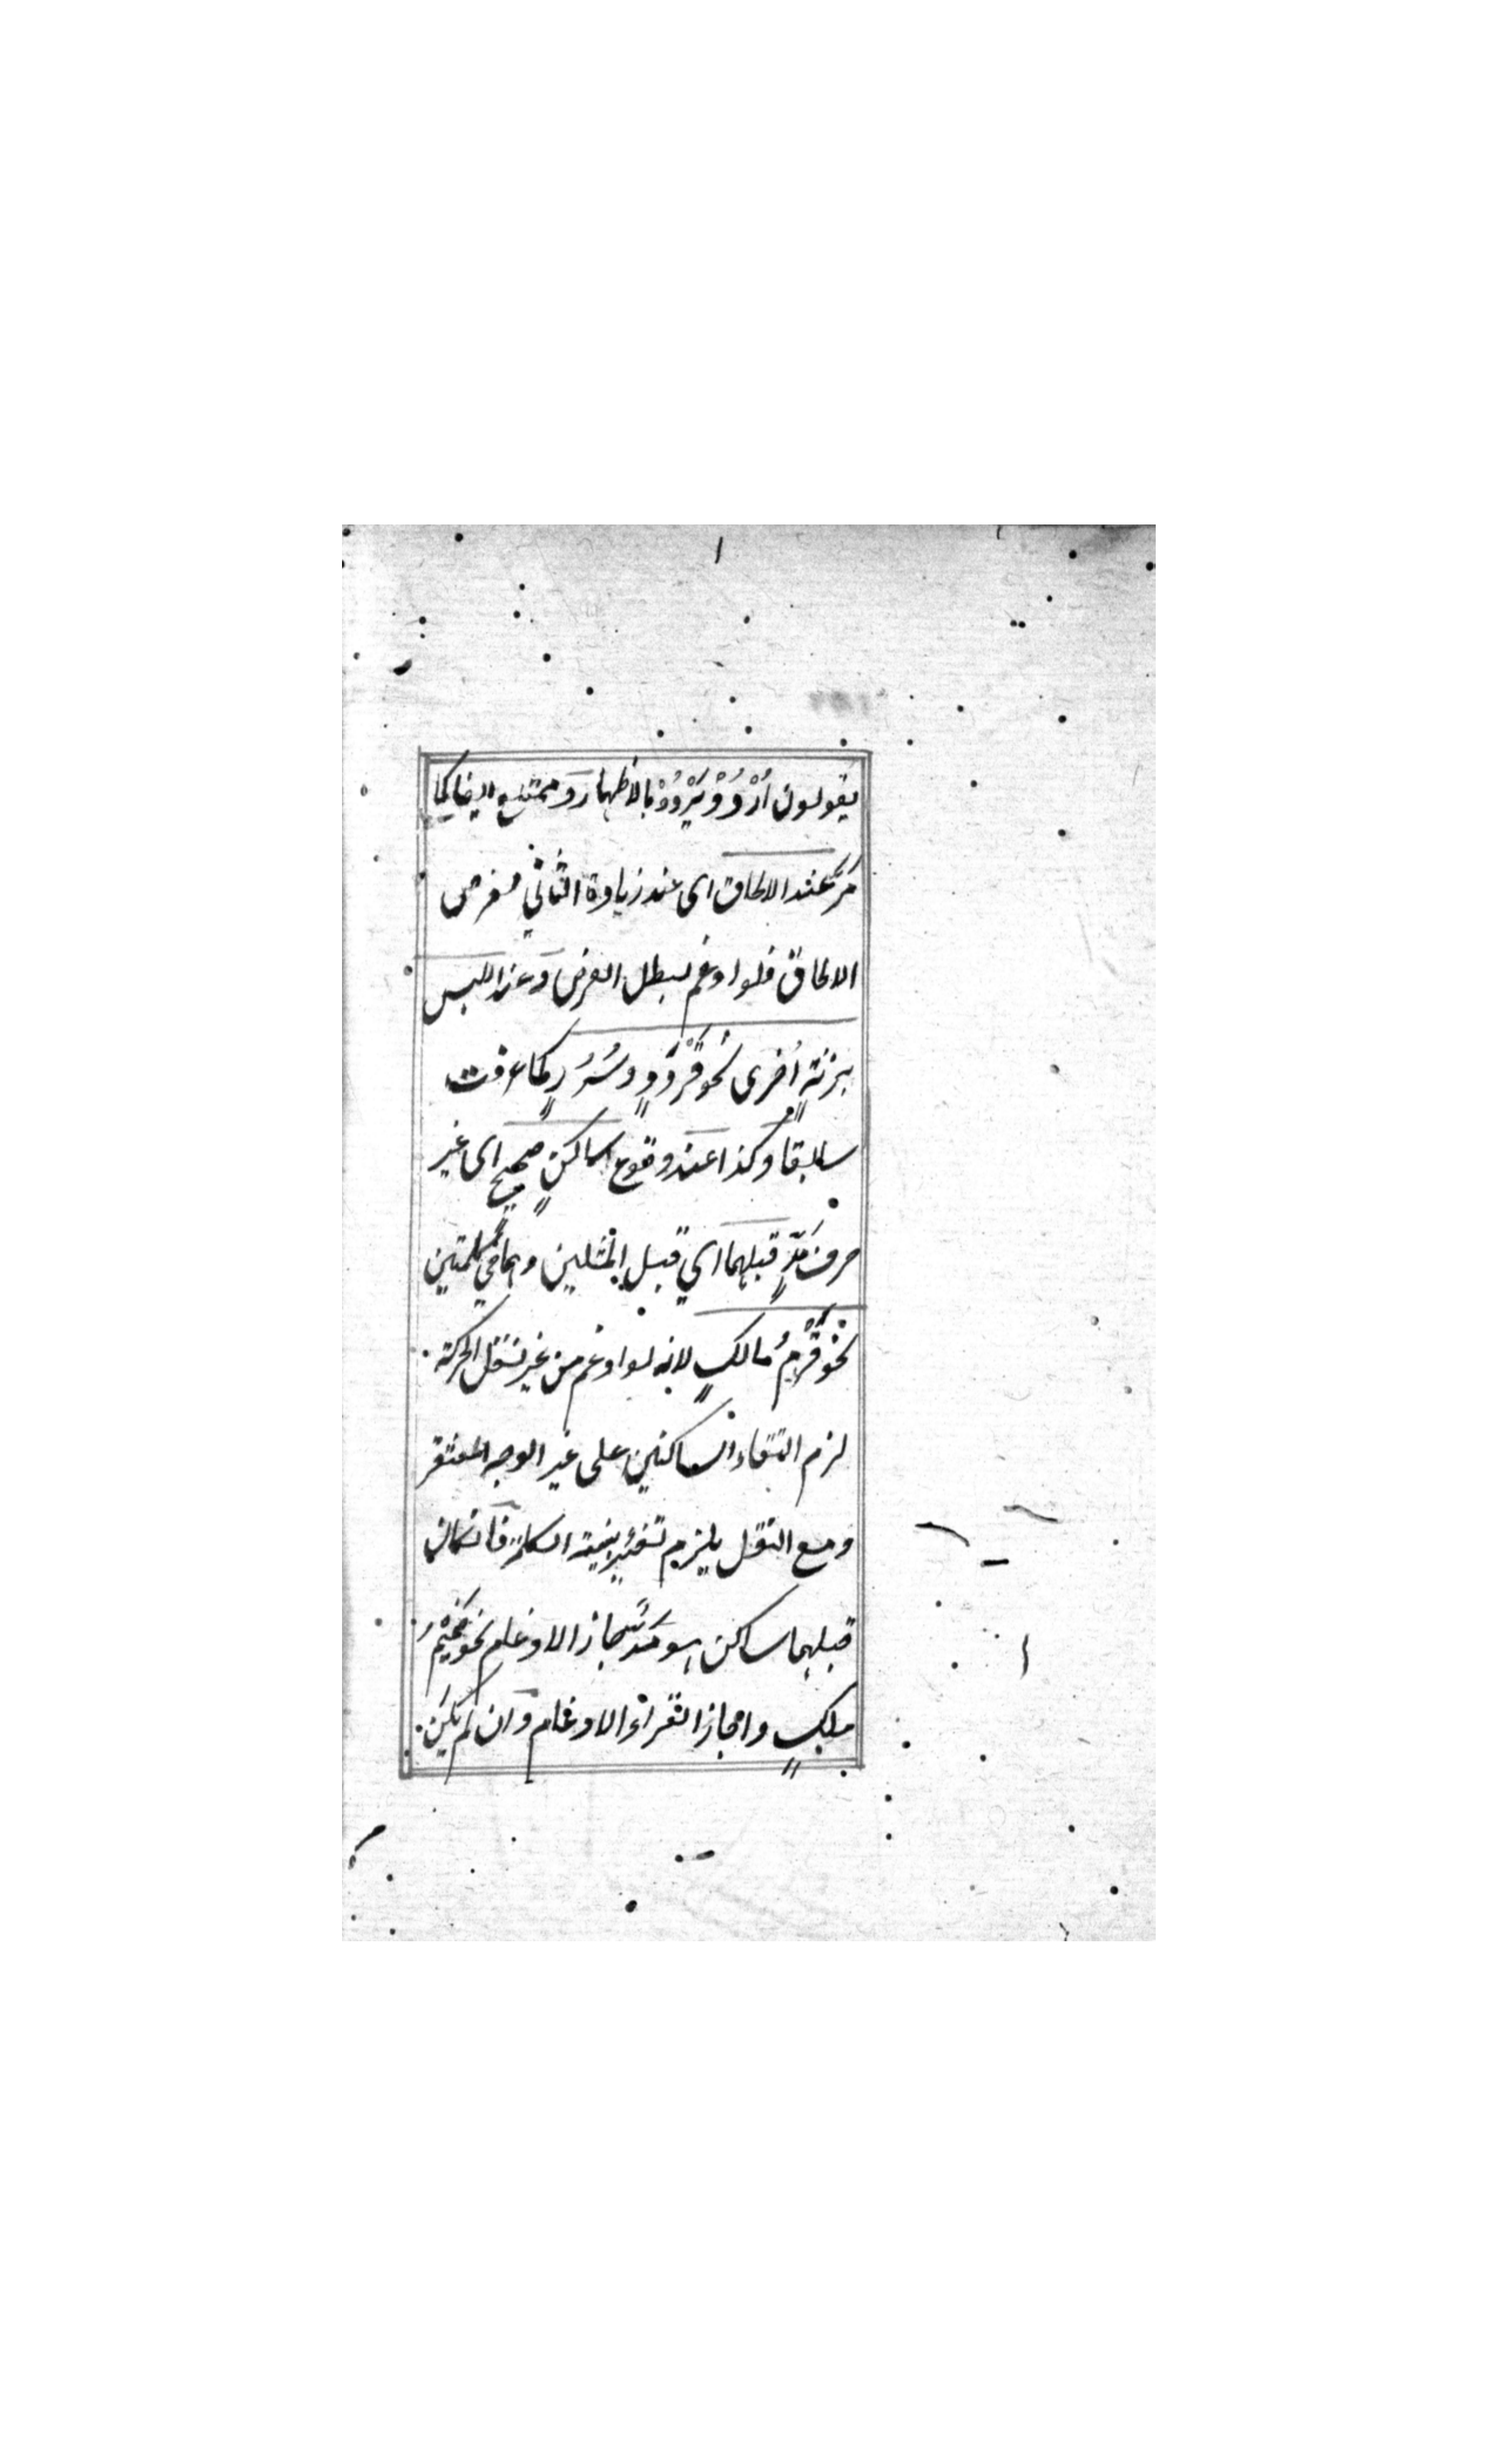 يقولون اُرْدُدْ وَيَرْدُدْ بالاظهار وَممتنع ايضا كما
مَرَّ عند الالحاق اى عند زيادة الثاني لغرض
الالحاق فلو ادغم لبطل الغرض وَعند اللبس
بزنةٍ اُخرى نحو قَرْدَدٍ وسُرُرٍ كما عرفت
سابقاً وكذا عند وقوع ساكنٍ صحيحٍ اى غير
حرف مَدٍّ قبلهما اي قبل المثلين وهما في كلمتين
نحْو قَرْمُ مالكٍ لانه لو ادغم من غير نقل الحركة
لزم التقاء الساكنين على غير الوجه المغتفر
ومع النقل يلزم تغيير بنية الكلمة فان كان
قبلهما ساكن هو مَدٌّ جاز الادغام نحو
مالكٍ واجاز القراء الادغام وَان لم يكن